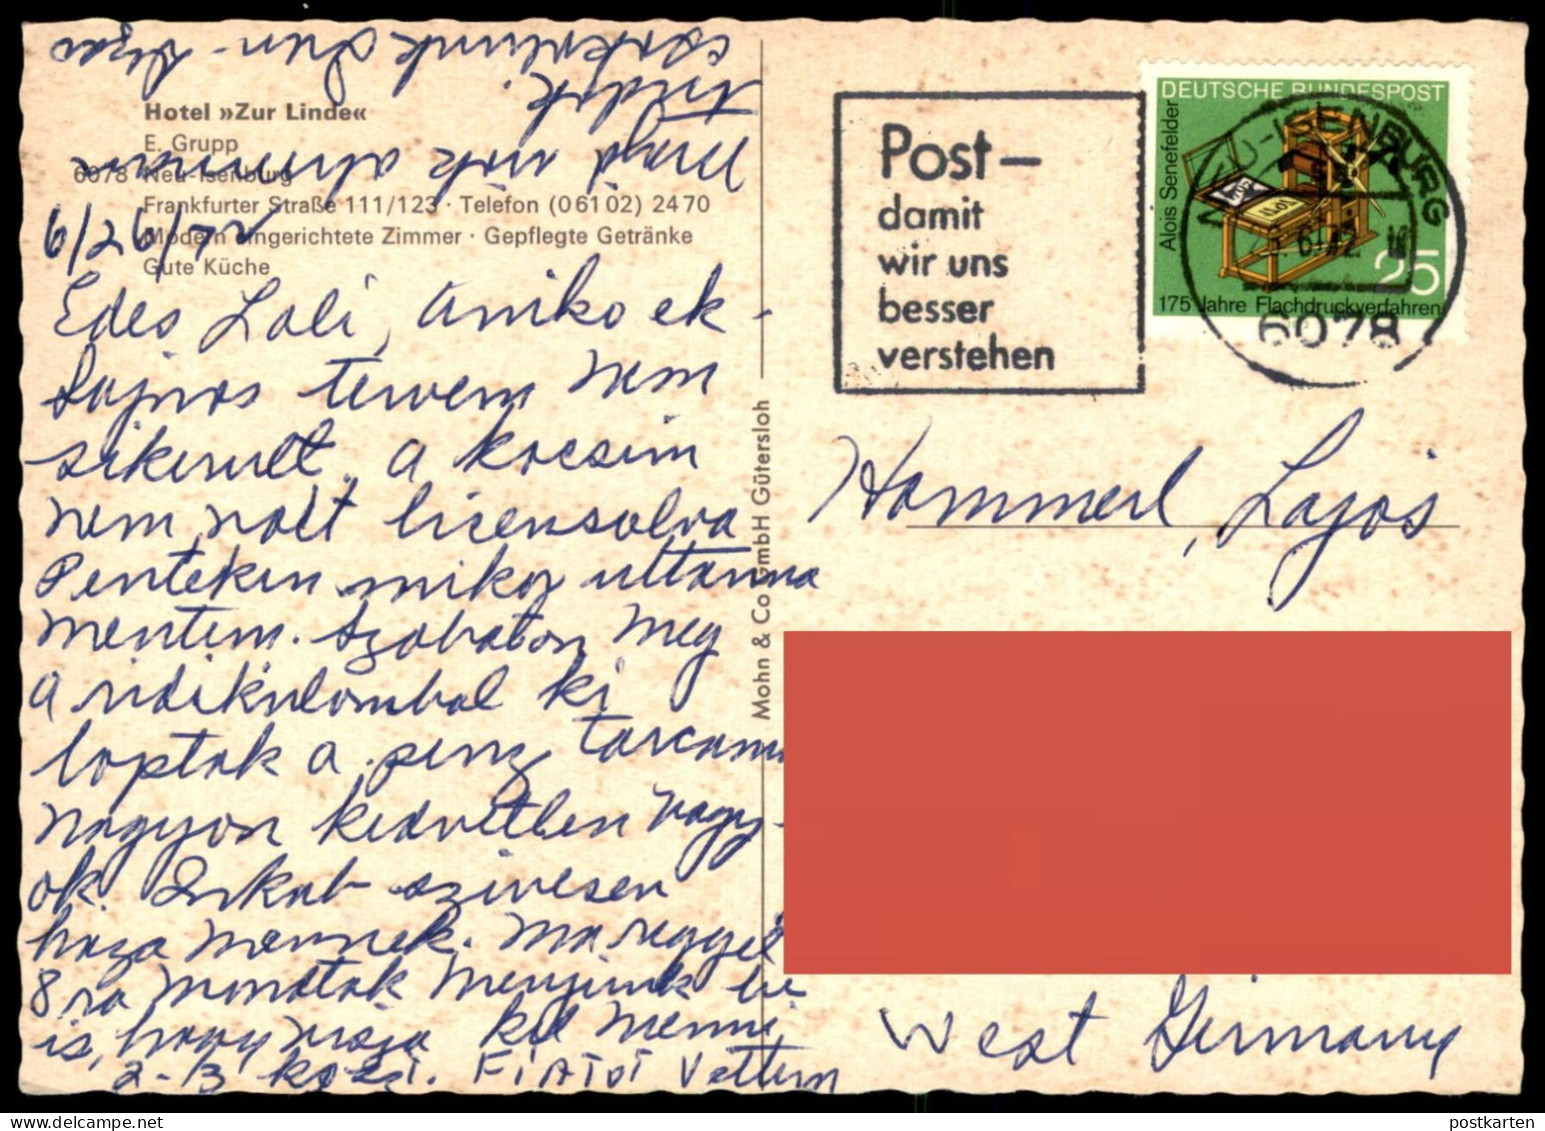 Hotel »Zur Linde«
E. Grupp
6078 Neu-Isenburg
Frankfurter Straße 111/123 · Telefon (06102) 2470
Modern eingerichtete Zimmer · Gepflegte Getränke
Gute Küche
Edes Lali, Aniko ek-
Lajnos tervem nem
sikerult, a kocsim
nem volt licensolva
Pentekin mikor uttanna
mentem. Szobaton meg
a ridikulombol ki
loptak a penz tarcam
Nagyon kedvetlen vagy-
ok. Inkab szivesen
haza mennek. Ma reggel
8ra mondtak menjunk be
is, hogy viza kel menni
2-3 kozt. Fiatol Vettem
majd
Mohn & Co GmbH Gütersloh
Post–
damit
wir uns
besser
verstehen
DEUTSCHE BUNDESPOST
Alois Senefelder
25
175 Jahre Flachdruckverfahren
NEU-ISENBURG
6078
Hammerl, Lajos
West Germany
postkarten